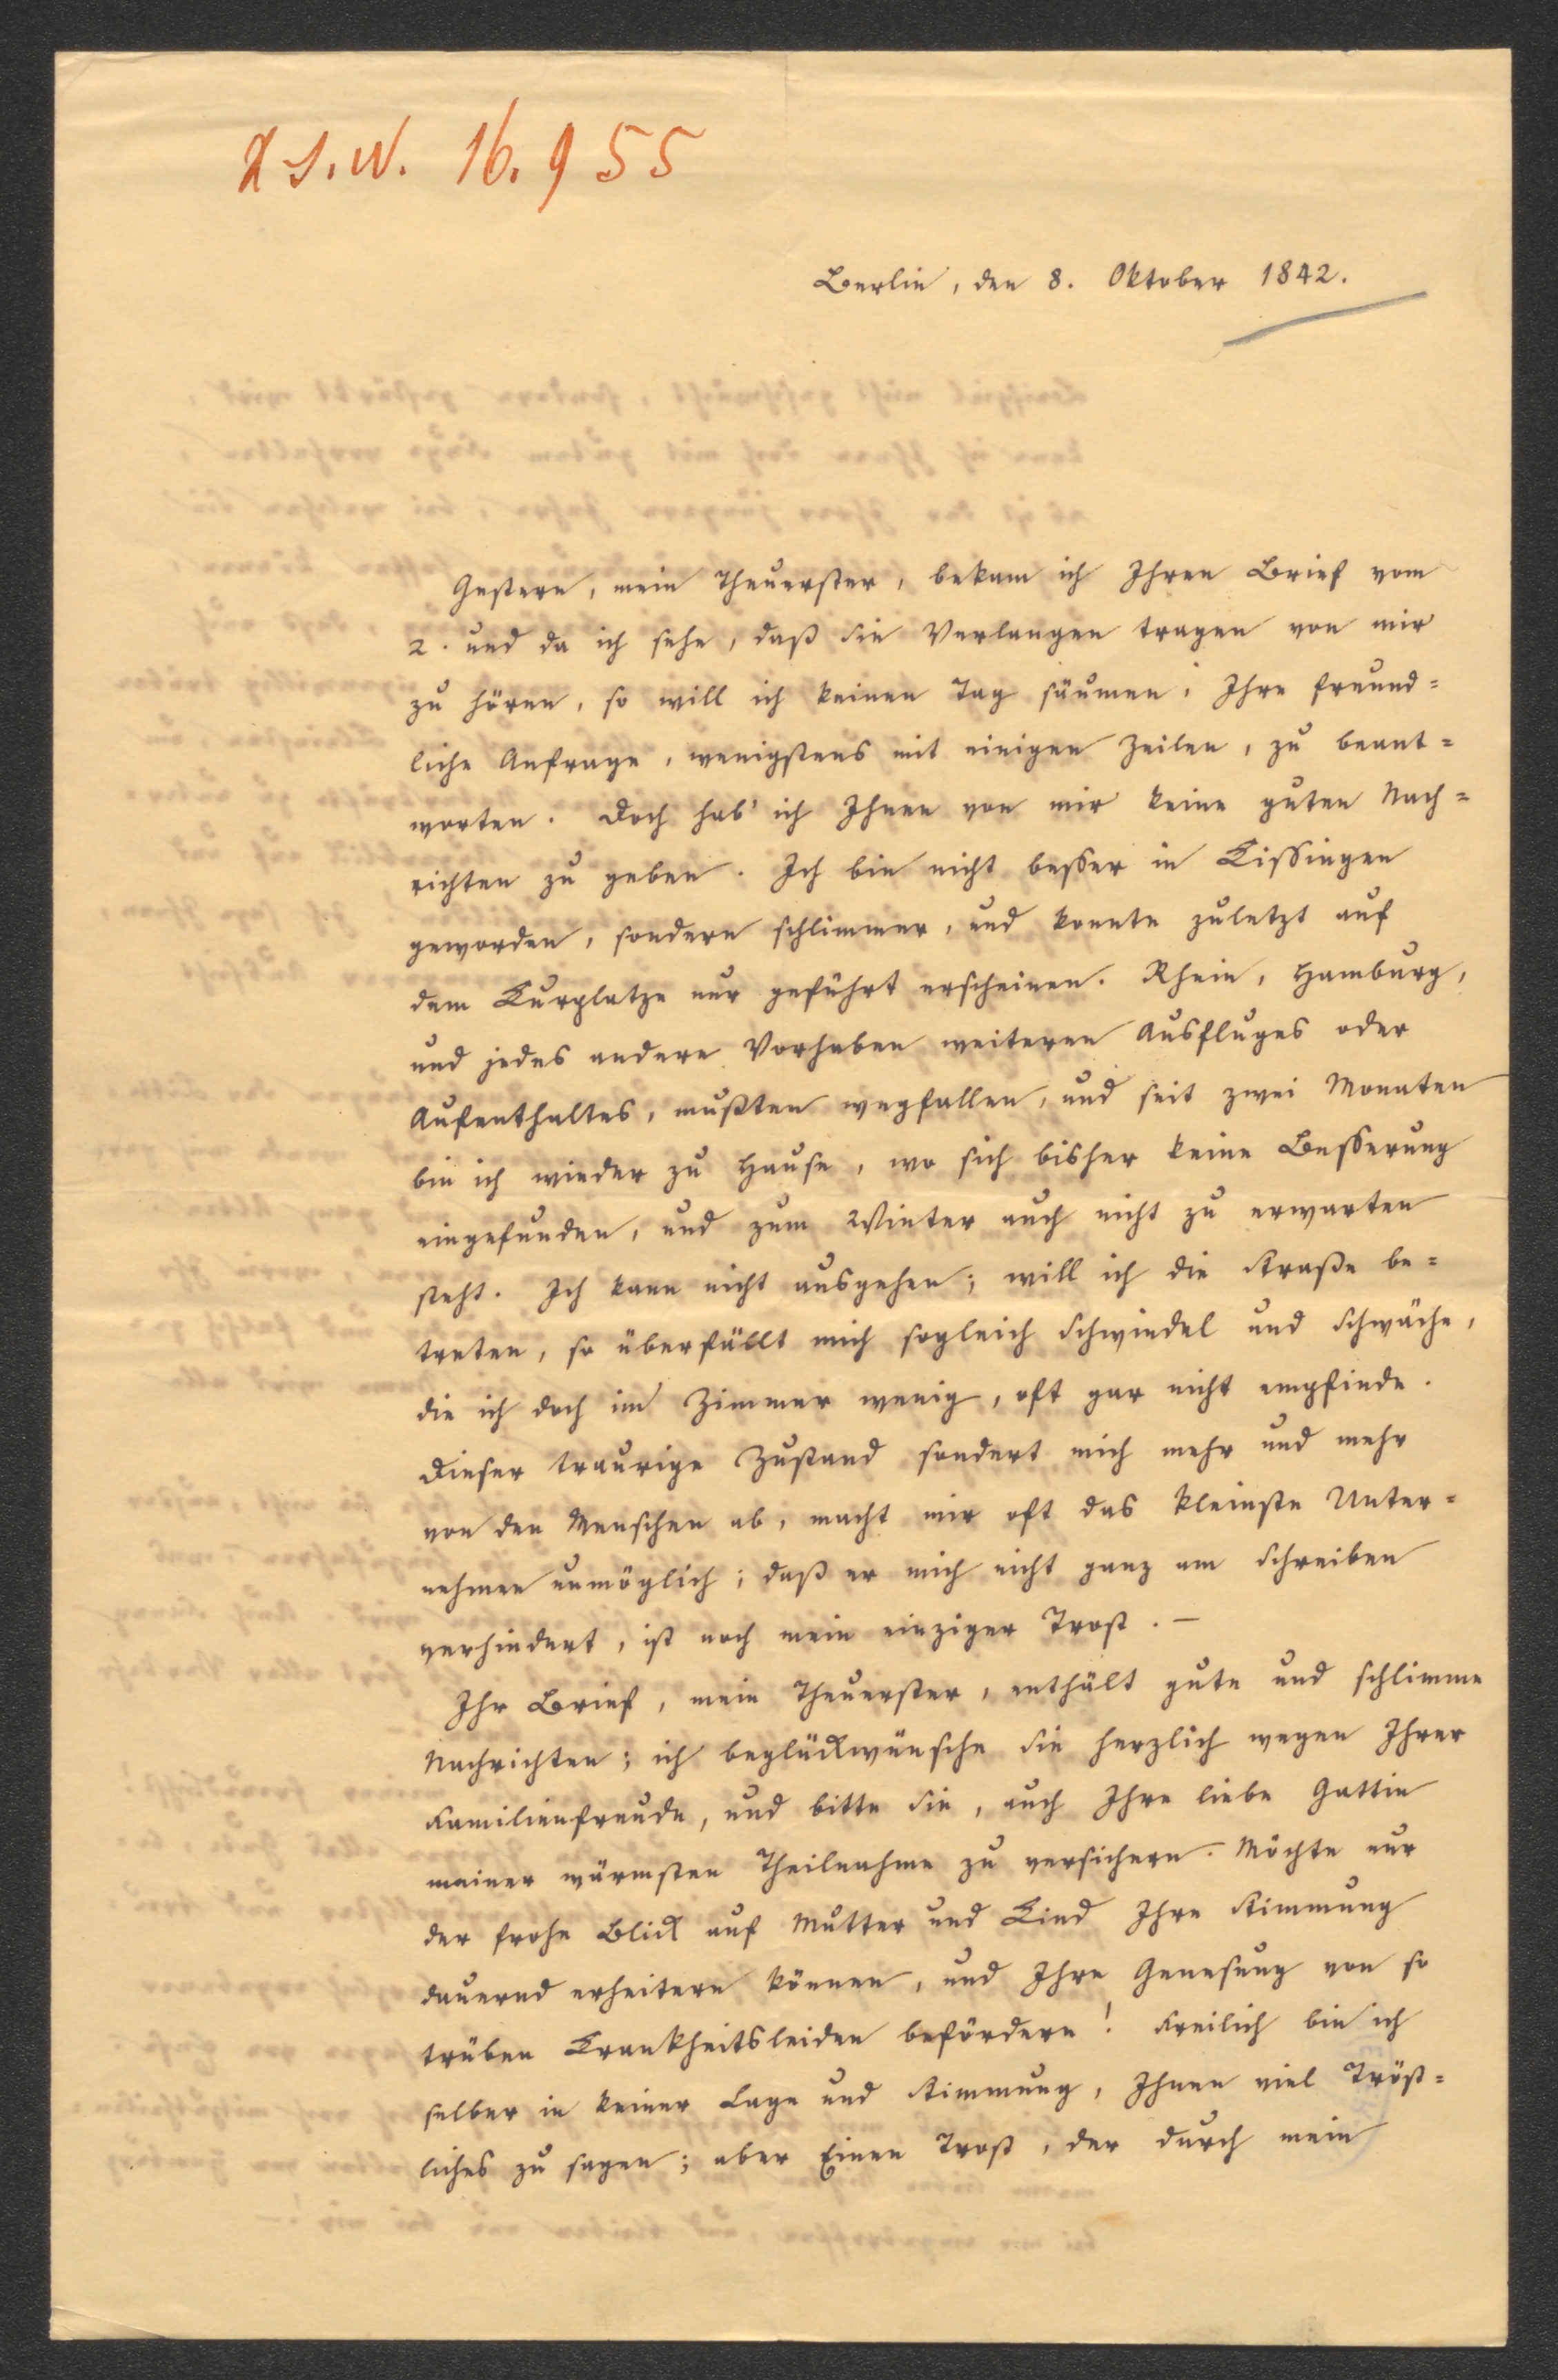 Z S.W. 16.955
Berlin, den 8. Oktober 1842.
Gestern, mein Theuerster, bekam ich Ihren Brief vom
2. und da ich sehe, daß Sie Verlangen tragen von mir
zu hören, so will ich keinen Tag säumen, Ihre freund=
liche Anfrage, wenigstens mit einigen Zeilen, zu beant=
worten. Doch hab' ich Ihnen von mir keine guten Nach=
richten zu geben. Ich bin nicht besser in Kissingen
geworden, sondern schlimmer, und konnte zuletzt auf
dem Kurplatze nur geführt erscheinen. Rhein, Hamburg,
und jedes andere Vorhaben weiteren Ausfluges oder
Aufenthaltes, mußten wegfallen, und seit zwei Monaten
bin ich wieder zu Hause, wo sich bisher keine Besserung
eingefunden, und zum Winter auch nicht zu erwarten
steht. Ich kann nicht ausgehen; will ich die Straße be=
treten, so überfällt mich sogleich Schwindel und Schwäche,
die ich doch im Zimmer wenig, oft gar nicht empfinde.
Dieser traurige Zustand sondert mich mehr und mehr
von den Menschen ab, macht mir oft das kleinste Unter=
nehmen unmöglich; daß er mich nicht ganz am Schreiben
verhindert, ist noch mein einziger Trost. —
Ihr Brief, mein Theuerster, enthält gute und schlimme
Nachrichten; ich beglückwünsche Sie herzlich wegen Ihrer
Familienfreude, und bitte Sie, auch Ihre liebe Gattin
meiner wärmsten Theilnahme zu versichern. Möchte nur
der frohe Blick auf Mutter und Kind Ihre Stimmung
dauernd erheitern können, und Ihre Genesung von so
trüben Krankheitsleiden befördern! Freilich bin ich
selber in keiner Lage und Stimmung, Ihnen viel Tröst=
liches zu sagen; aber Einen Trost, der durch mein